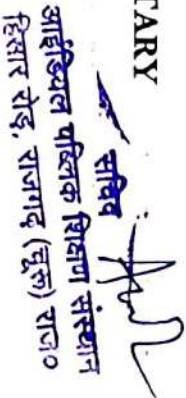 TARY
सचिव
आईडियल पब्लिक शिक्षण संस्थान
हिसार रोड़, राजगढ़ (चूरू) राज०